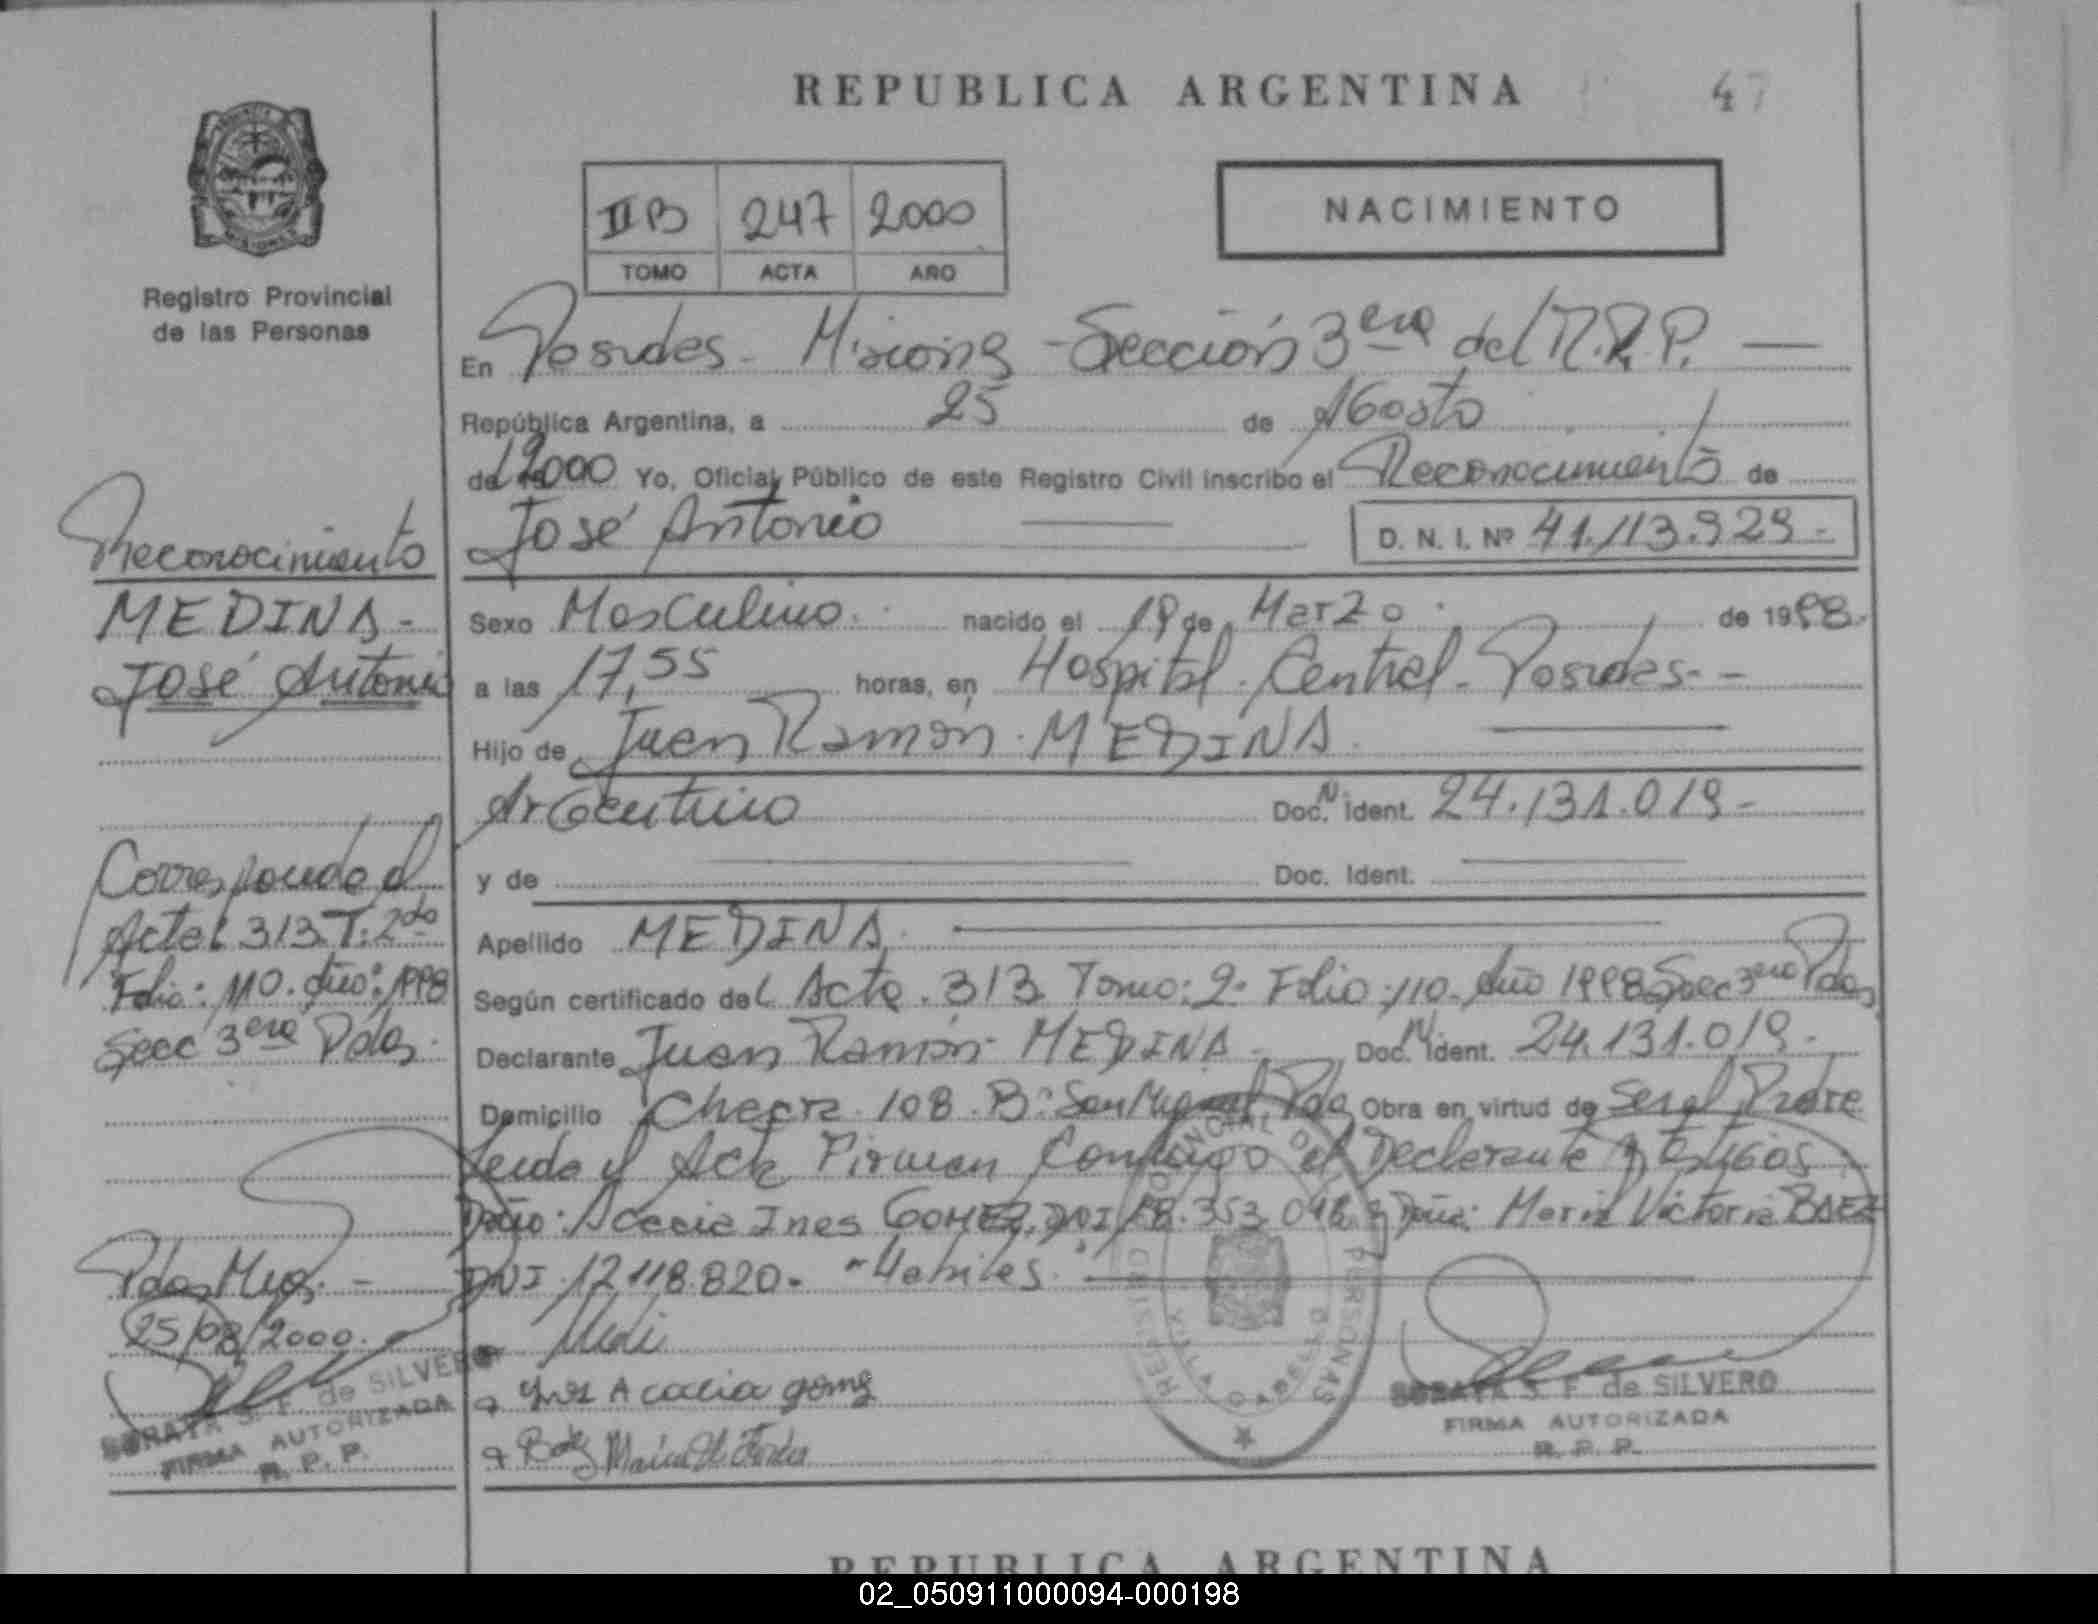 REPUBLICA ARGENTINA
47
IIB 247 2000
TOMO ACTA AÑO
NACIMIENTO
Registro Provincial
de las Personas
En Posadas - Misiones - Sección 3era del R.P.P.
República Argentina, a 25 de Agosto
de 2000 Yo, Oficial Público de este Registro Civil inscribo el Reconocimiento de
José Antonio D. N. I. Nº 41.113.929.-
Sexo Masculino. nacido el 19 de Marzo de 1998.
a las 17,55 horas, en Hospital Central - Posadas.-
Hijo de Juan Ramón MEDINA
Argentino Doc. N. Ident. 24.131.019-
y de Doc. Ident.
Apellido MEDINA
Según certificado del Acta 313 Tomo: 2º Folio 110. Año 1998 Secc 3era Pdas
Declarante Juan Ramón MEDINA Doc. N. Ident. 24.131.019.-
Domicilio Chacra 108. Bº San Miguel Pdas Obra en virtud de Ser el Padre
Leida el Acta Firman Conmigo el Declarante y testigos
Doña: Acacia Ines GOMEZ. DNI 18.353.048 y Doña: Maria Victoria BAEZ
DNI 12.118.820- "Habiles"
Ines Acacia gomez
Baez Maria
SORAYA S. F. de SILVERO
FIRMA AUTORIZADA
R. P. P.
Reconocimiento
MEDINA -
José Antonio
Corresponde al
Acta 313 T. 2do
Folio: 110. Año: 1998
Secc 3era Pdas.
Pdas Mnes. -
25/08/2000.
SORAYA S. F. de SILVERO
FIRMA AUTORIZADA
R. P. P.
REPUBLICA ARGENTINA
02_050911000094-000198